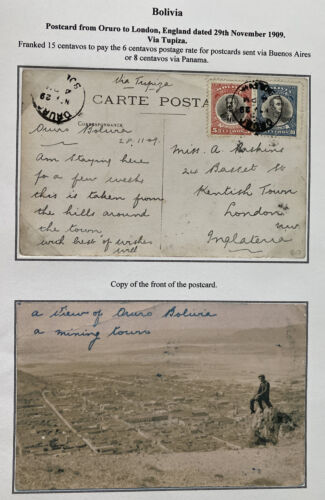 Bolivia
Postcard from Oruro to London, England dated 29th November 1909.
Via Tupiza.
Franked 15 centavos to pay the 6 centavos postage rate for postcards sent via Buenos Aires
or 8 centavos via Panama.
Via Tupiza
CARTE POSTA
CORRESPONDANCE
Oruro Bolivia
29.11.09.
Am staying here
for a few weeks
this is taken from
the hills around
the town
with best of wishes
Will
Miss. A
24 Basset St
Kentish Town
London
NW
Inglaterra
ORURO
29
Copy of the front of the postcard.
a view of Oruro Bolivia
a mining town